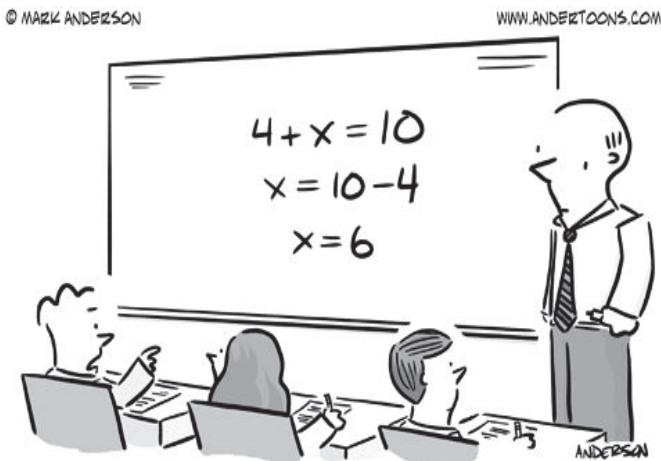 © MARK ANDERSON
WWW.ANDERTOONS.COM
4 + x = 10
x = 10 - 4
x = 6
ANDERSON